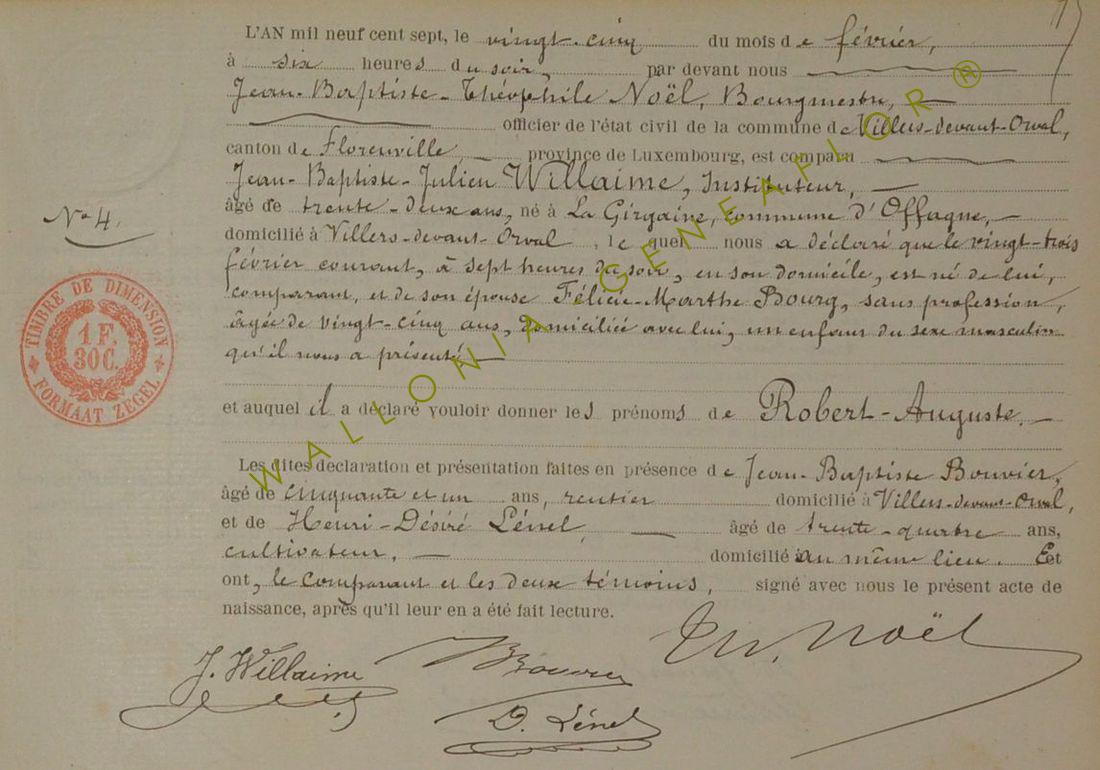 L'AN mil neuf cent sept, le vingt-cinq du mois de février,
à six heures du soir, par devant nous
Jean-Baptiste-Théophile Noël, Bourgmestre,
officier de l'état civil de la commune de Villers-devant-Orval,
canton de Florenville, province de Luxembourg, est comparu
Jean-Baptiste-Julien Willaime, Instituteur,
âgé de trente-deux ans, né à La Girgaine, commune d'Offagne,
domicilié à Villers-devant-Orval, le quel nous a déclaré que le vingt-trois
février courant, à sept heures du soir, en son domicile, est né de lui,
comparant, et de son épouse Félicie-Marthe Bourg, sans profession,
âgée de vingt-cinq ans, domiciliée avec lui, un enfant du sexe masculin
qu'il nous a présenté
et auquel il a déclaré vouloir donner les prénoms de Robert-Auguste.
Les dites declaration et présentation faites en présence de Jean-Baptiste Bouvier,
âgé de cinquante et un ans, rentier domicilié à Villers-devant-Orval,
et de Henri-Désiré Lénel, âgé de trente-quatre ans,
cultivateur, domicilié au même lieu. Et
ont, le comparant et les deux témoins, signé avec nous le présent acte de
naissance, après qu'il leur en a été fait lecture.
No 4.
TIMBRE DE DIMENSION
1 F.
30 C.
FORMAAT ZEGEL
J. Willaime
Th. Noël
D. Lénel
WALLONIA GENEAFLOR ®